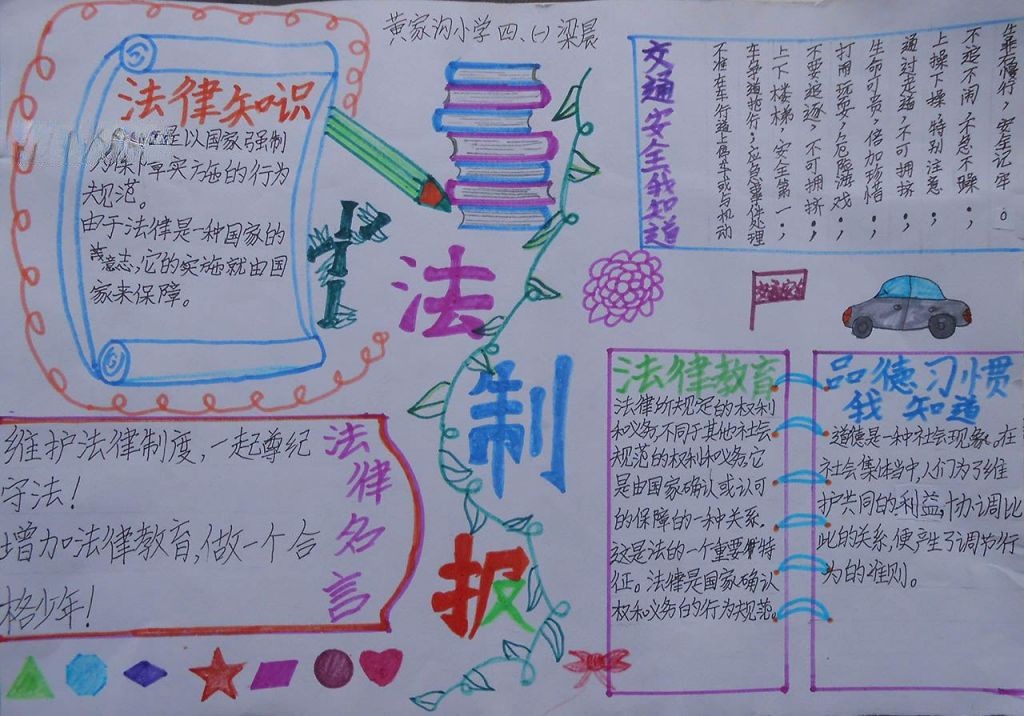 黄家沟小学四、(一) 梁晨
法律知识
是以国家强制
力保卜享实方施的行为
规范。
由于法律是一种国家的
意志,它的实施就由国
家来保障。
交通安全我知道
生乘右慢行,安全记牢。
不追不闹,不急不躁,
上操下操,特别注意
通过走通,不可拥挤,
生命可贵,倍加珍惜
打闹玩耍,危险游戏,
不要追逐,不可拥挤,
上下楼梯,安全第一,
车争道抢行,应急事件处理
不准在车行道上停车或与机动
法
制
报
交通安全
维护法律制度,一起尊纪
守法!
增加法律教育,做一个合
格少年!
法律名言
法律教育
法律所规定的权利
和义务不同于其他社会
规范的权利和义务,它
是由国家确认或认可
的保障的一种关系,
这是法的一个重要特
征。法律是国家确认
权和义务的行为规范。
品德习惯
我知道
道德是一种社会现象。在
社会集体当中,人们为了维
护共同的利益,协调比
此的关系,便产生了调节行
为的准则。